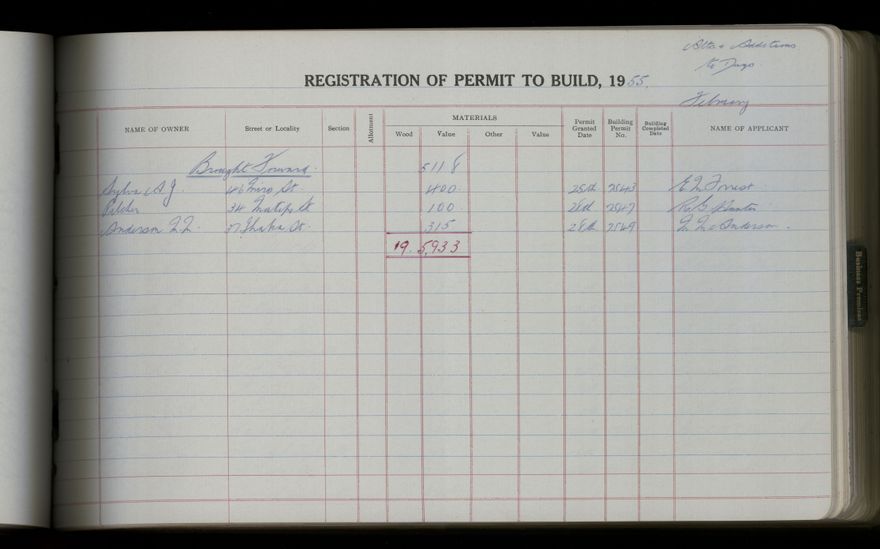 Alts & Additions
to Dwgs.
REGISTRATION OF PERMIT TO BUILD, 1955.
February
NAME OF OWNER Street or Locality Section Allotment MATERIALS Wood Value Other Value Permit Granted Date Building Permit No. Building Completed Date NAME OF APPLICANT
Brought Forward. 5118
A.J. 46 Miro St. 400. 25th 2543 E L Forrest.
Pilcher 34 St. 100. 28th 2547
Anderson 37 St. 315 28th 2549 Anderson.
19. 5,933
Business Premises